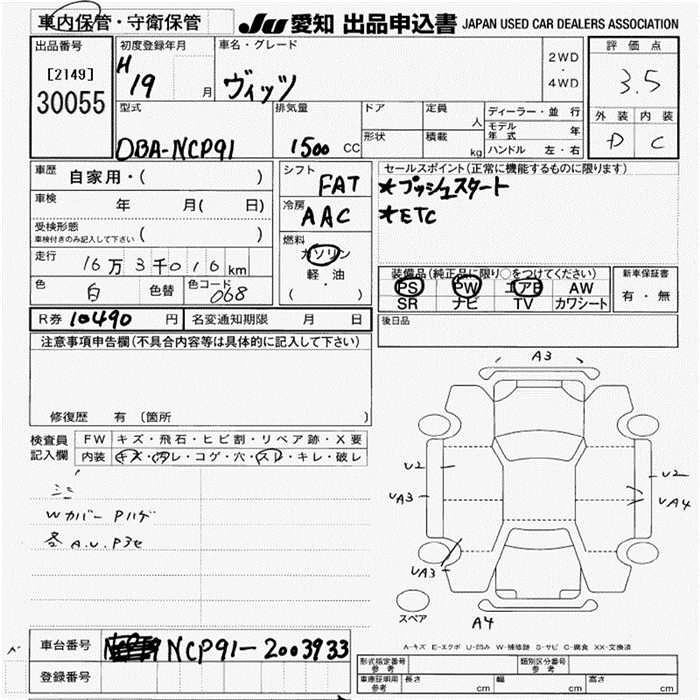 車内保管・守衛保管 JU 愛知 出品申込書 JAPAN USED CAR DEALERS ASSOCIATION
出品番号 初度登録年月 車名・グレード 2WD・4WD 評価点
[2149] 30055 H19 月 ヴィッツ 3.5
型式 排気量 ドア 定員 人 ディーラー・並 行 外装 内装
形状 積載 kg モデル年式 年
DBA-NCP91 1500 CC ハンドル 左・右 D C
車歴 自家用・( ) シフト FAT セールスポイント(正常に機能するものに限ります)
車検 年 月( 日) 冷房 AAC ★プッシュスタート
★ETC
受検形態 車検付きのみ記入して下さい ( ) 燃料 ガソリン
走行 16万3千016km 軽・油 ( ・ )
装備品(純正品に限り○をつけてください) 新車保証書
色 白 色替 色コード 068 PS PW エアB AW 有・無
SR ナビ TV カワシート
R券 10490 円 名変通知期限 月 日 後日品
注意事項申告欄(不具合内容等は具体的に記入して下さい)
修復歴 有 (箇所 )
検査員記入欄 FW キズ・飛石・ヒビ割・リペア跡・X要
内装 キズ・汚レ・コゲ・穴・スレ・キレ・破レ
Wカバー Pハゲ
各A.U.P3セ
A3
U2 U2
UA3 UA4
UA3
スペア A4
A-キズ E-エクボ U-凹み W-補修跡 S-サビ C-腐食 XX-交換済
車台番号 NCP91-2003933
登録番号
形式指定番号 参考 類別区分番号 参考
車庫証明用 参考 長さ cm 幅 cm 高さ cm